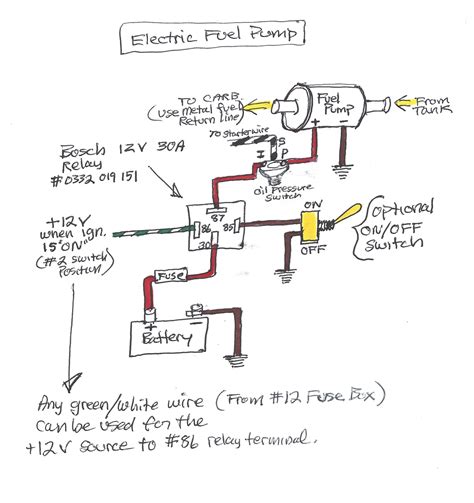 Electric Fuel Pump
TO CARB.
(use metal fuel
Return line)
Fuel
Pump
From
Tank
+
−
To starter wire
S
I
P
Oil Pressure
Switch
Bosch 12V 30A
Relay
#0332 019 151
87
86
85
30
+12V
when ign.
15"ON"
(#2 switch
Position)
ON
OFF
Optional
ON/OFF
Switch
Fuse
+
−
Battery
Any green/white wire (From #12 Fuse Box)
Can be used for the
+12V source to #86 relay terminal.